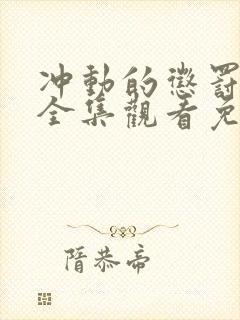 冲動的懲罰
全集觀看免
隋恭帝